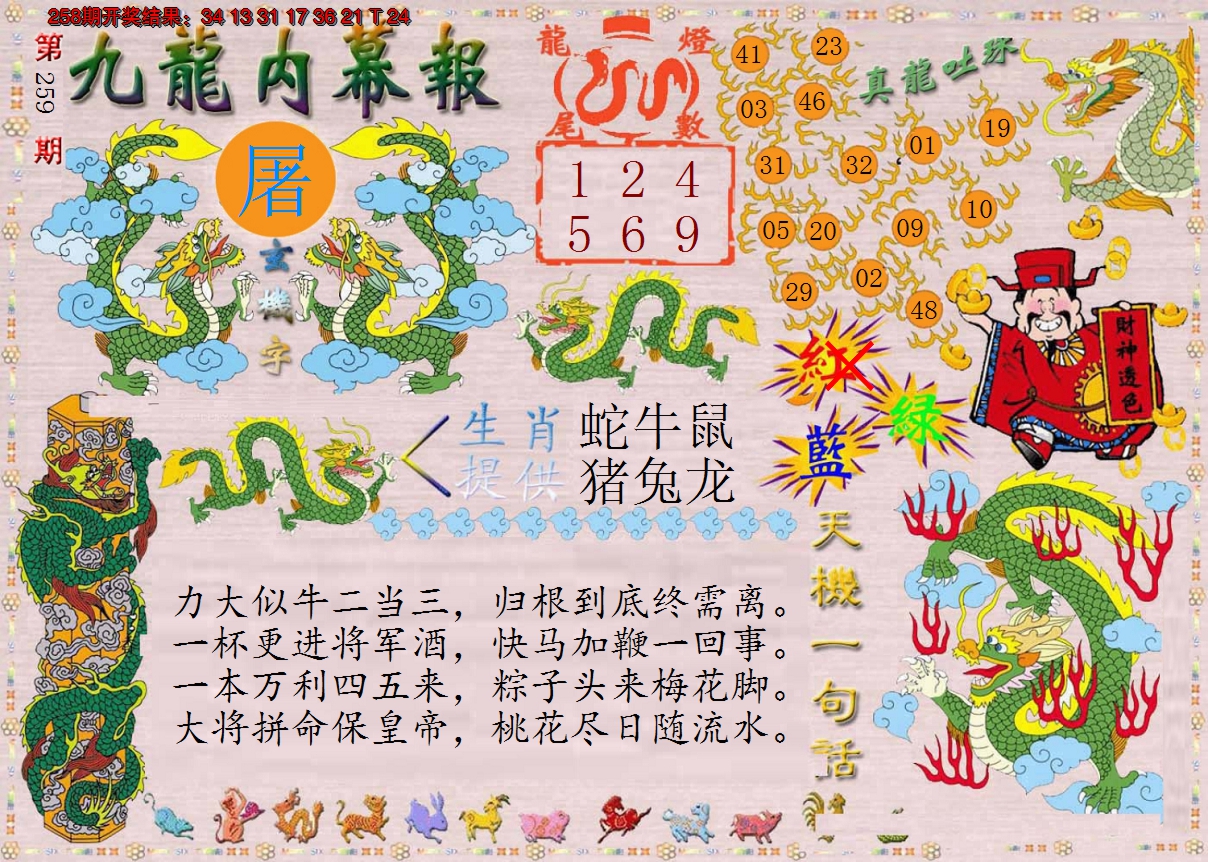 258期开奖结果：34 13 31 17 36 21 T 24
第259期
九龍内幕報
屠
玄機字
龍燈
尾數
1 2 4
5 6 9
真龍吐珠
41
23
03
46
31
32
01
19
05
20
09
10
29
02
48
財神透色
紅
綠
藍
生肖
提供
蛇牛鼠
猪兔龙
天機一句话
力大似牛二当三，归根到底终需离。
一杯更进将军酒，快马加鞭一回事。
一本万利四五来，粽子头来梅花脚。
大将拼命保皇帝，桃花尽日随流水。